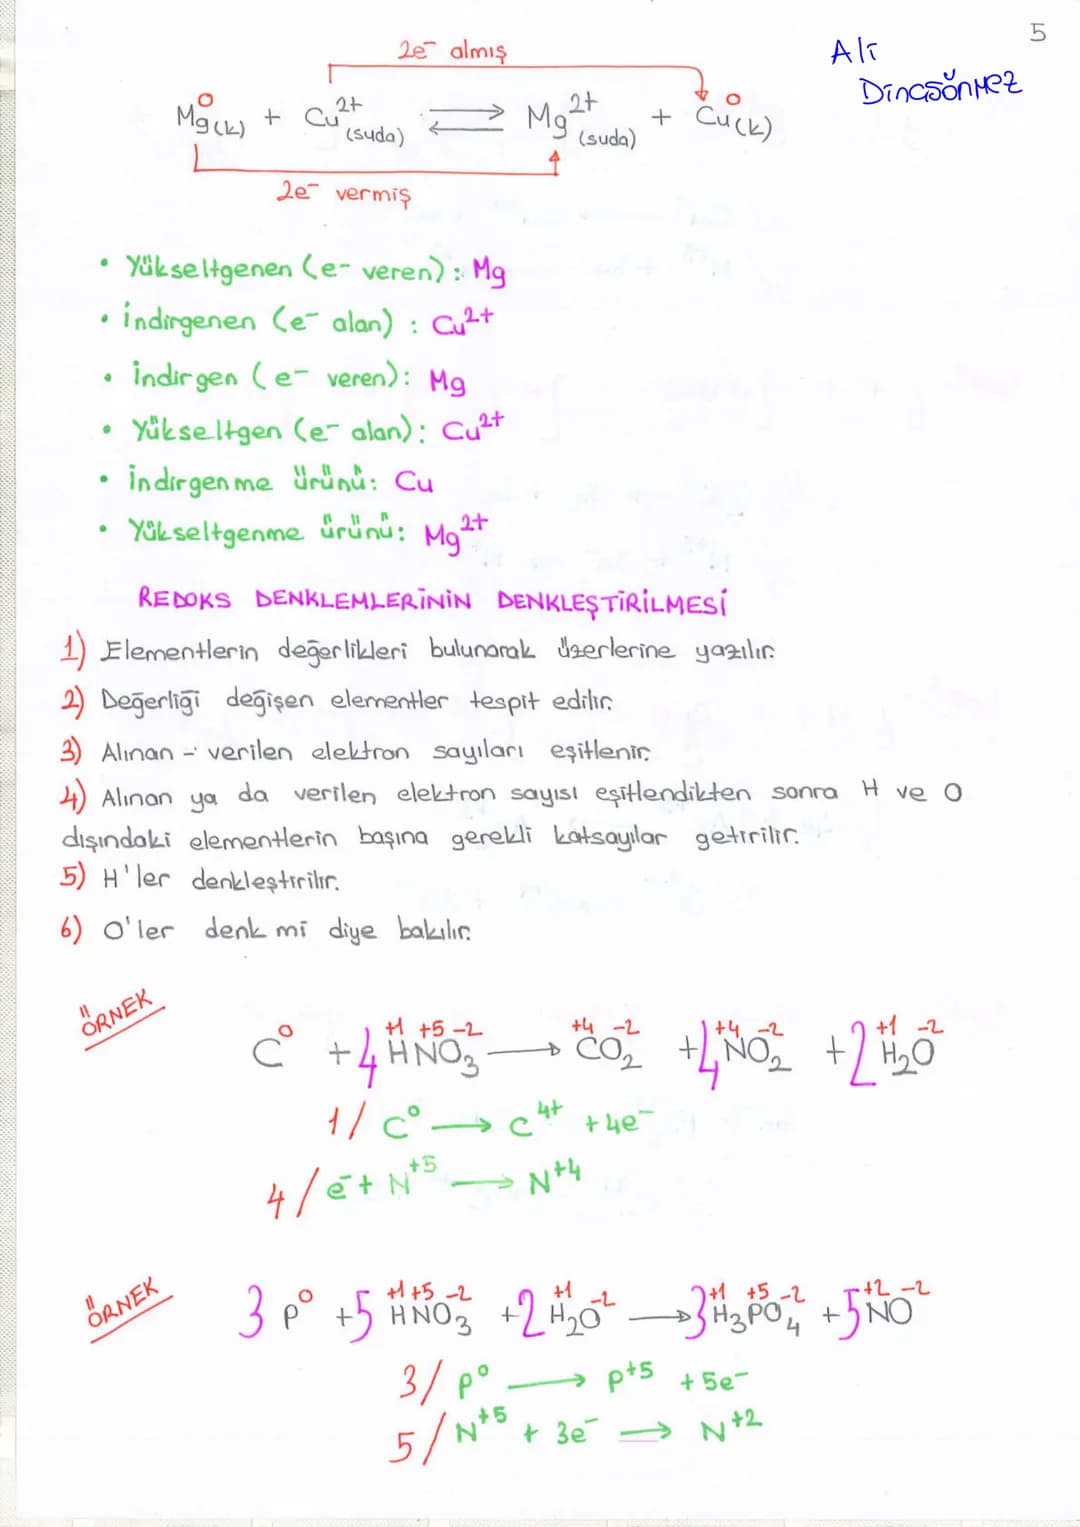 5
Ali
Dinçsönmez
2e⁻ almış
Mg⁰(k) + Cu²⁺(suda) ⇌ Mg²⁺(suda) + Cu⁰(k)
2e⁻ vermiş
• Yükseltgenen (e- veren) : Mg
• İndirgenen (e⁻ alan) : Cu²⁺
• İndirgen (e⁻ veren): Mg
• Yükseltgen (e⁻ alan): Cu²⁺
• İndirgenme ürünü: Cu
• Yükseltgenme ürünü: Mg²⁺
REDOKS DENKLEMLERİNİN DENKLEŞTİRİLMESİ
1) Elementlerin değerlikleri bulunarak üzerlerine yazılır.
2) Değerliği değişen elementler tespit edilir.
3) Alınan - verilen elektron sayıları eşitlenir.
4) Alınan ya da verilen elektron sayısı eşitlendikten sonra H ve O
dışındaki elementlerin başına gerekli katsayılar getirilir.
5) H'ler denkleştirilir.
6) O'ler denk mi diye bakılır.
ÖRNEK
0 +1 +5 -2 +4 -2 +4 -2 +1 -2
C + 4 HNO₃ → CO₂ + 4 NO₂ + 2 H₂O
1/ C⁰ → C⁴⁺ + 4e⁻
4/ e⁻ + N⁺⁵ → N⁺⁴
ÖRNEK
0 +1 +5 -2 +1 -2 +1 +5 -2 +2 -2
3 P + 5 HNO₃ + 2 H₂O → 3 H₃PO₄ + 5 NO
3/ P⁰ → P⁺⁵ + 5e⁻
5/ N⁺⁵ + 3e⁻ → N⁺²